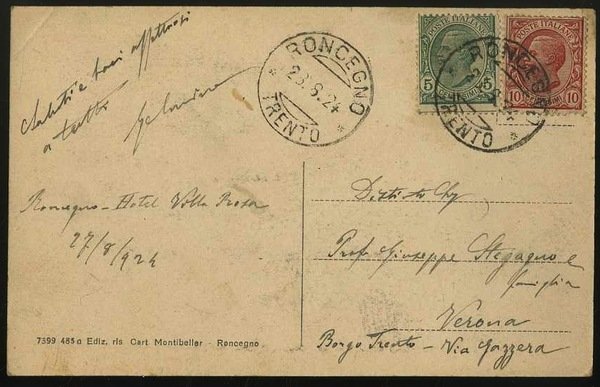 Saluti e baci affettuosi
a tutti
Roncegno - Hotel Villa Rosa
27/8/924
7399 485a Ediz. ris Cart. Montibeller - Roncegno
RONCEGNO
28.8.24
TRENTO
POSTE ITALIANE
5 5
POSTE ITALIANE
10 10
RONCEGNO
TRENTO
Prof Giuseppe Stegagno e
famiglia
Verona
Borgo Trento - Via Gazzera